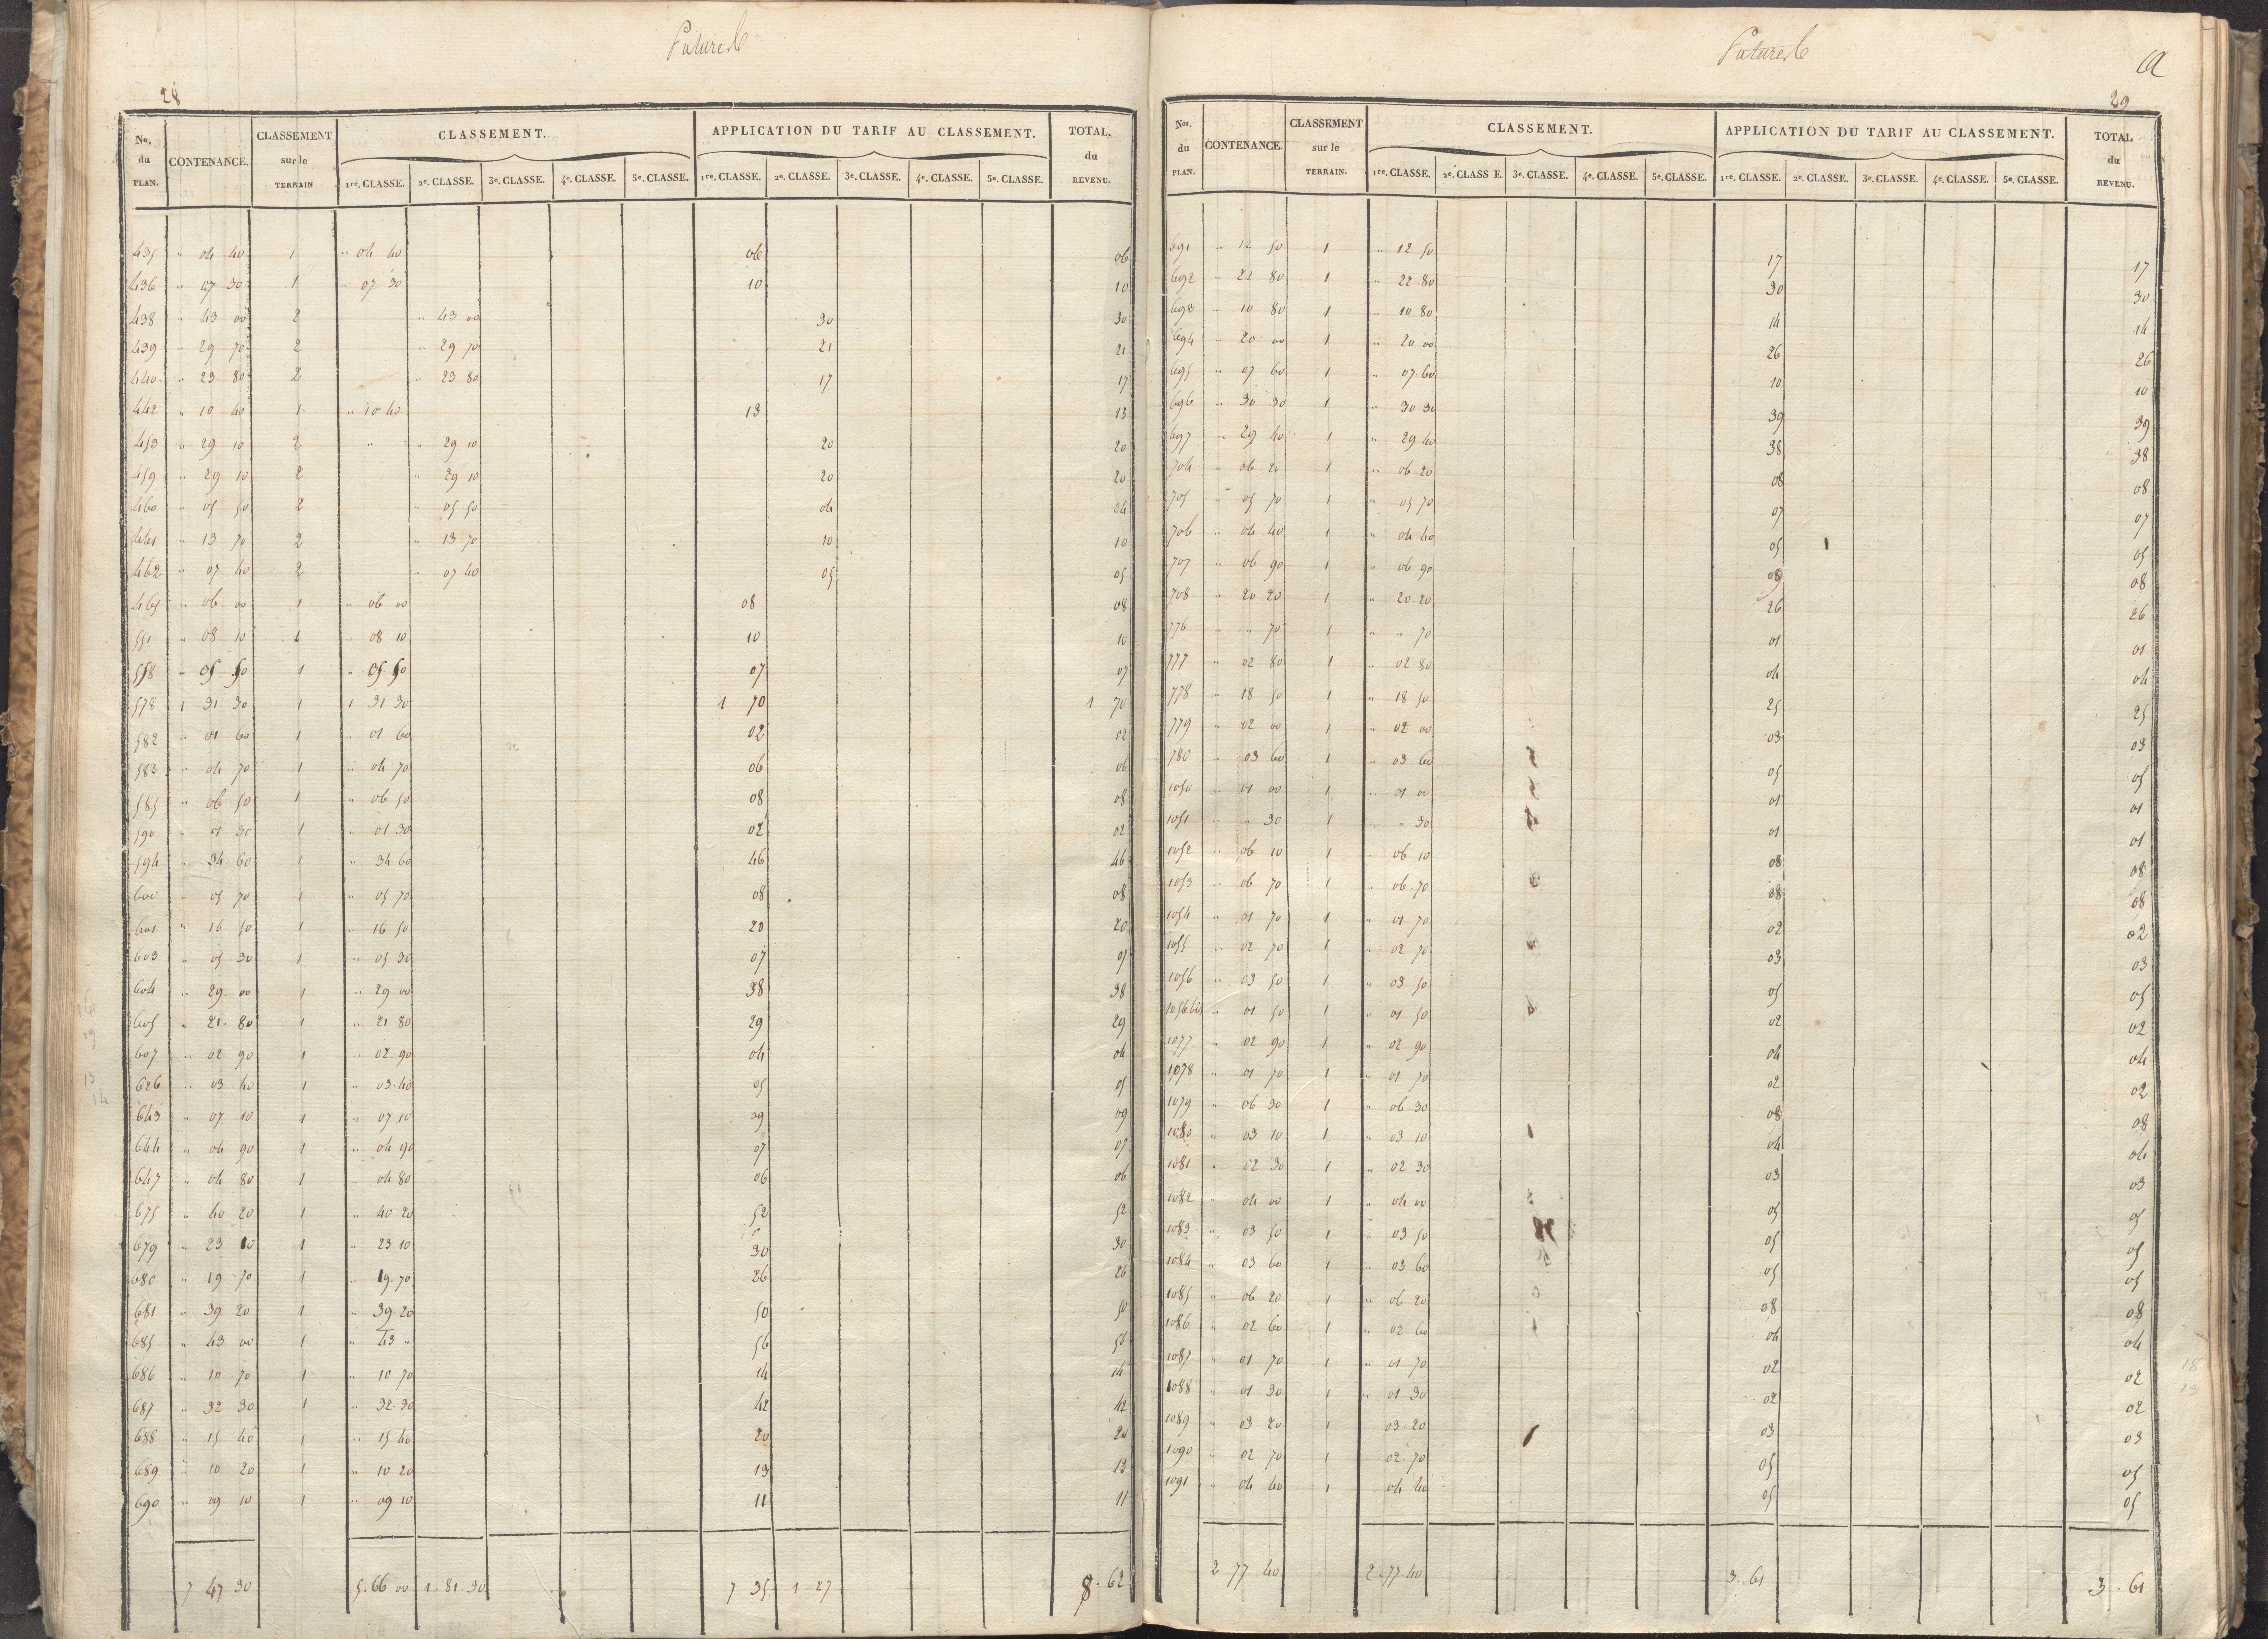 Patures
28
No. du PLAN. | CONTENANCE. | CLASSEMENT sur le TERRAIN | CLASSEMENT. | APPLICATION DU TARIF AU CLASSEMENT. | TOTAL. du REVENU.
1re. CLASSE. 2e. CLASSE. 3e. CLASSE. 4e. CLASSE. 5e. CLASSE. 1re. CLASSE. 2e. CLASSE. 3e. CLASSE. 4e. CLASSE. 5e. CLASSE.
435 " 04 40 1 " 04 40 06 06
436 " 07 30 1 " 07 30 10 10
438 " 43 00 2 " 43 00 30 30
439 " 29 70 2 " 29 70 21 21
440 " 23 80 2 " 23 80 17 17
442 " 10 40 1 " 10 40 13 13
453 " 29 10 2 " " 29 10 20 20
459 " 29 10 2 " 29 10 20 20
460 " 05 50 2 " 05 50 04 04
461 " 13 70 2 " 13 70 10 10
462 " 07 40 2 " 07 40 05 05
465 " 06 00 1 " 06 00 08 08
551 " 08 10 1 " 08 10 10 10
558 " 05 50 1 " 05 50 07 07
578 1 31 30 1 1 31 30 1 70 1 70
582 " 01 60 1 " 01 60 02 02
583 " 04 70 1 " 04 70 06 06
585 " 06 50 1 " 06 50 08 08
590 " 01 30 1 " 01 30 02 02
594 " 34 60 1 " 34 60 46 46
600 " 05 70 1 " 05 70 08 08
601 " 16 50 1 " 16 50 20 20
603 " 05 30 1 " 05 30 07 07
604 " 29 00 1 " 29 00 38 38
605 " 21 80 1 " 21 80 29 29
607 " 02 90 1 " 02 90 04 04
626 " 03 40 1 " 03 40 05 05
643 " 07 10 1 " 07 10 09 09
644 " 04 90 1 " 04 90 07 07
647 " 04 80 1 " 04 80 06 06
675 " 40 20 1 " 40 20 52 52
679 " 23 10 1 " 23 10 30 30
680 " 19 70 1 " 19 70 26 26
681 " 39 20 1 " 39 20 50 50
685 " 43 00 1 " 43 " 56 56
686 " 10 70 1 " 10 70 14 14
687 " 32 30 1 " 32 30 42 42
688 " 15 40 1 " 15 40 20 20
689 " 10 20 1 " 10 20 13 13
690 " 09 10 1 " 09 10 11 11
7 47 30 5.66 00 1.81.30 7 35 1 27 8.62
Patures
29
Nos. du PLAN. | CONTENANCE. | CLASSEMENT sur le TERRAIN. | CLASSEMENT. | APPLICATION DU TARIF AU CLASSEMENT. | TOTAL du REVENU.
1re. CLASSE. 2e. CLASS E. 3e. CLASSE. 4e. CLASSE. 5e. CLASSE. 1re. CLASSE. 2e. CLASSE. 3e. CLASSE. 4e. CLASSE. 5e. CLASSE.
691 " 12 50 1 " 12 50 17 17
692 " 22 80 1 " 22 80 30 30
693 " 10 80 1 " 10 80 14 14
694 " 20 00 1 " 20 00 26 26
695 " 07 60 1 " 07 60 10 10
696 " 30 30 1 " 30 30 39 39
697 " 29 40 1 " 29 40 38 38
704 " 06 20 1 " 06 20 08 08
705 " 05 70 1 " 05 70 07 07
706 " 04 40 1 " 04 40 05 05
707 " 06 90 1 " 06 90 09 08
708 " 20 20 1 " 20 20 26 26
776 " " 70 1 " " 70 01 01
777 " 02 80 1 " 02 80 04 04
778 " 18 50 1 " 18 50 25 25
779 " 02 00 1 " 02 00 03 03
780 " 03 60 1 " 03 60 05 05
1050 " 01 00 1 " 01 00 01 01
1051 " " 30 1 " " 30 01 01
1052 " 06 10 1 " 06 10 08 08
1053 " 06 70 1 " 06 70 08 08
1054 " 01 70 1 " 01 70 02 02
1055 " 02 70 1 " 02 70 03 03
1056 " 03 50 1 " 03 50 05 05
1056 bis " 01 50 1 " 01 50 02 02
1077 " 02 90 1 " 02 90 04 04
1078 " 01 70 1 " 01 70 02 02
1079 " 06 30 1 " 06 30 08 08
1080 " 03 10 1 " 03 10 04 04
1081 " 02 30 1 " 02 30 03 03
1082 " 04 00 1 " 04 00 05 05
1083 " 03 50 1 " 03 50 05 05
1084 " 03 60 1 " 03 60 05 05
1085 " 06 20 1 " 06 20 08 08
1086 " 02 60 1 " 02 60 04 04
1087 " 01 70 1 " 01 70 02 02
1088 " 01 30 1 " 01 30 02 02
1089 " 03 20 1 03 20 03 03
1090 " 02 70 1 02 70 05 05
1091 " 04 40 1 04 40 05 05
2 77 40 2.77 40 3.61 3.61